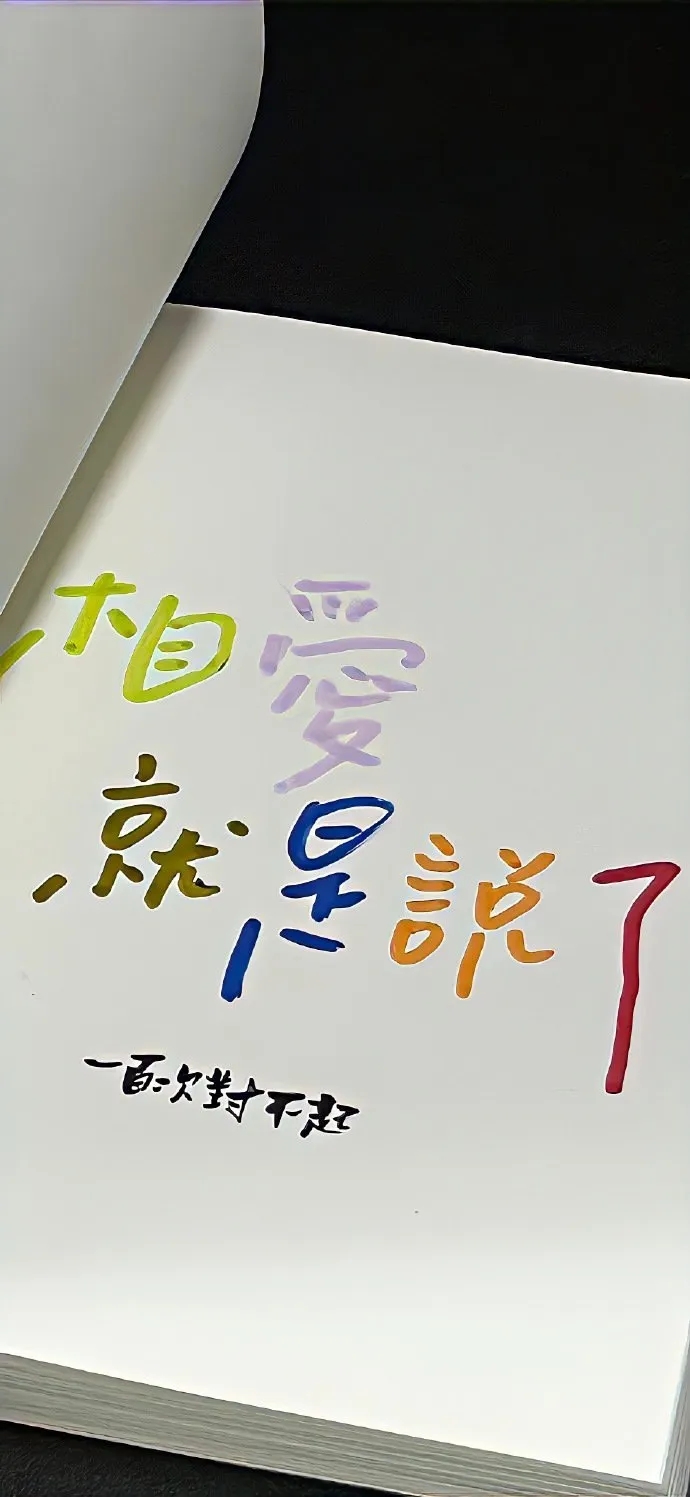 相愛
就是說了
一百次對不起